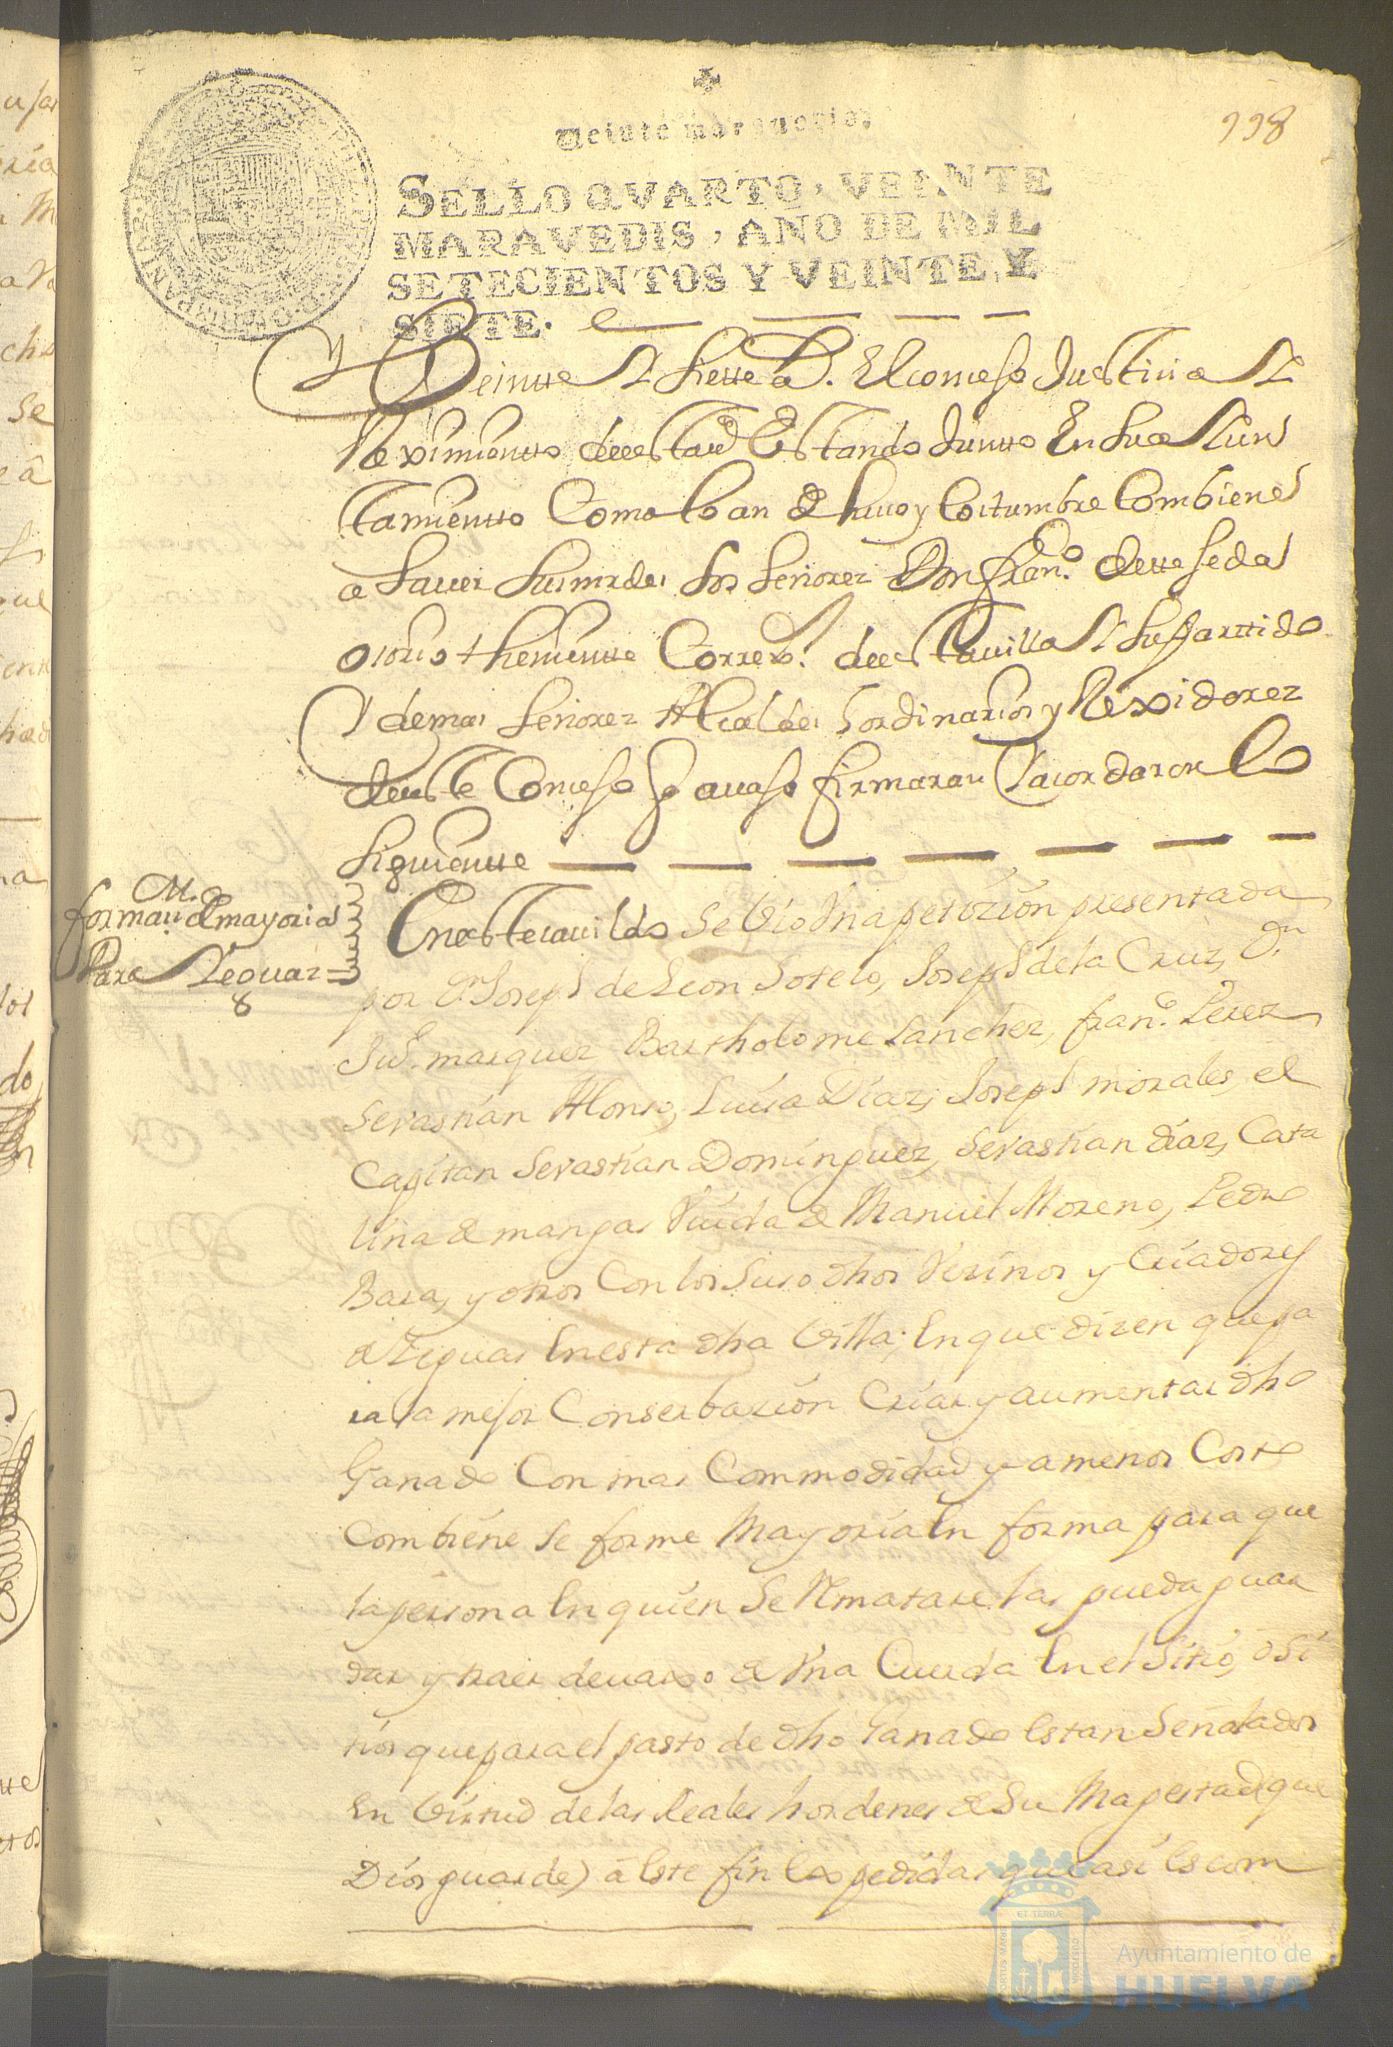 Veinte maravedis.
998
SELLO QVARTO, VEINTE
MARAVEDIS, AÑO DE MIL
SETECIENTOS Y VEINTE Y
SIETE.
Y Beintte y siette a.s El conceso Justticia y
Reximientto de esta va Estando Juntto En su Ayun
tamientto Como lo an de huso y Costumbre Combiene
a saver sus mrdes los señorez Don Fran.co de tteseda
osorio theniente Correx.r de esta villa y su parttido
Y demas señorez Alcaldes hordinarios y Rexidorez
de este Conceso q avaso firmaran Y acordaron lo
siguientte
M.
forman de mayoria
Para Yeguaz
En este cavildo se vio Vna petizion presentada
por Dn Joseph de Leon Sotelo, Joseph de la Cruz, Dn
Ju.o marquez Bartholome sanchez, fran.co Perez
Sevastian Alonso, Luisa Diaz, Joseph morales, el
Capitan Sevastian Dominguez, Sevastian diaz, Cata
lina de mangas Viuda de Manuel Moreno, Pedro
Bara, y otros Con los suso dhos Vezinos y Criadores
de Yeguas En esta dha Villa; En que dizen que pa
ra la mejor Conserbazion Criar y aumentar dho
Ganado Con mas Commodidad y a menos Costo
Combiene se forme Mayoria En forma para que
la persona En quien se Rematare las pueda guar
dar y traer devaxo de Vna Cuerda En el Sitio, o Si
tios que para el pasto de dho Ganado Estan Señalados
En Virtud de las Reales hordenes de Su Magestad (que
Dios guarde) a Este fin Expedidas que asi Es com
Ayuntamiento de
HUELVA